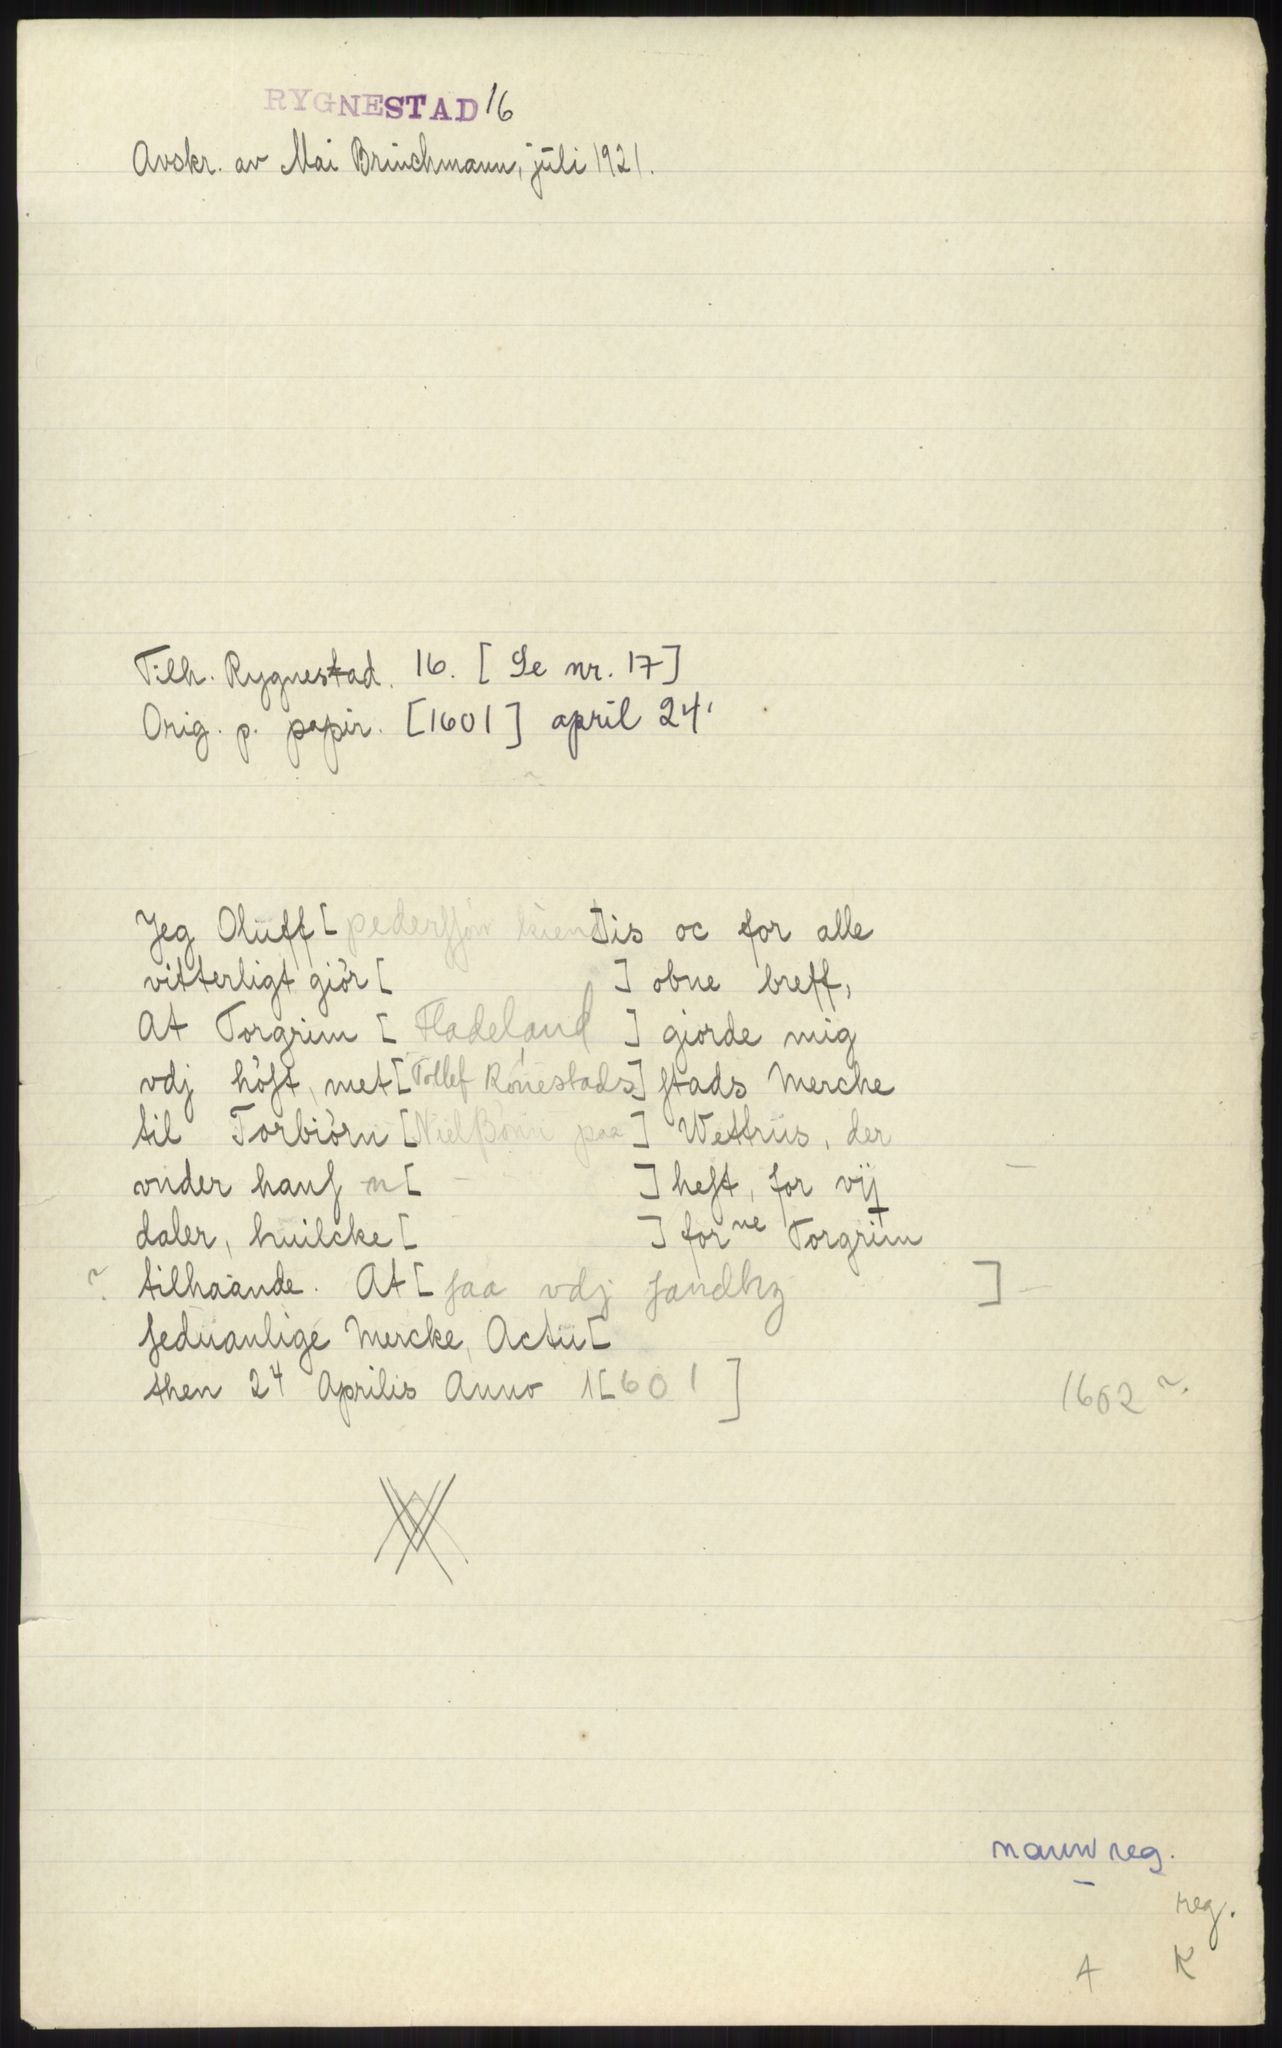 RYGNESTAD 16
Avskr. av Mai Brinchmann, juli 1921.
Tilh. Rygnestad. 16. [Se nr. 17]
Orig. p. papir. [1601] april 24.
Jeg Olüff [pederssøn kien]dis oc for alle
vitterligt giör [ ] obne breff,
At Torgrim [Fladeland] giorde mig
vdj höst, met [Tollef Rönestads] stads Mercke
til Torbiörn [Nielßönn paa] Wettrüs, der
vnder hans n[ ] hest, for vij
daler, huilcke [ ] forne Torgrim
? tilhaande. At [saa vdj sandhz ]
seduanlige Mercke, Actü[
then 24 Aprilis Anno 1[601]
1602 ?
navnreg.
reg.
A K